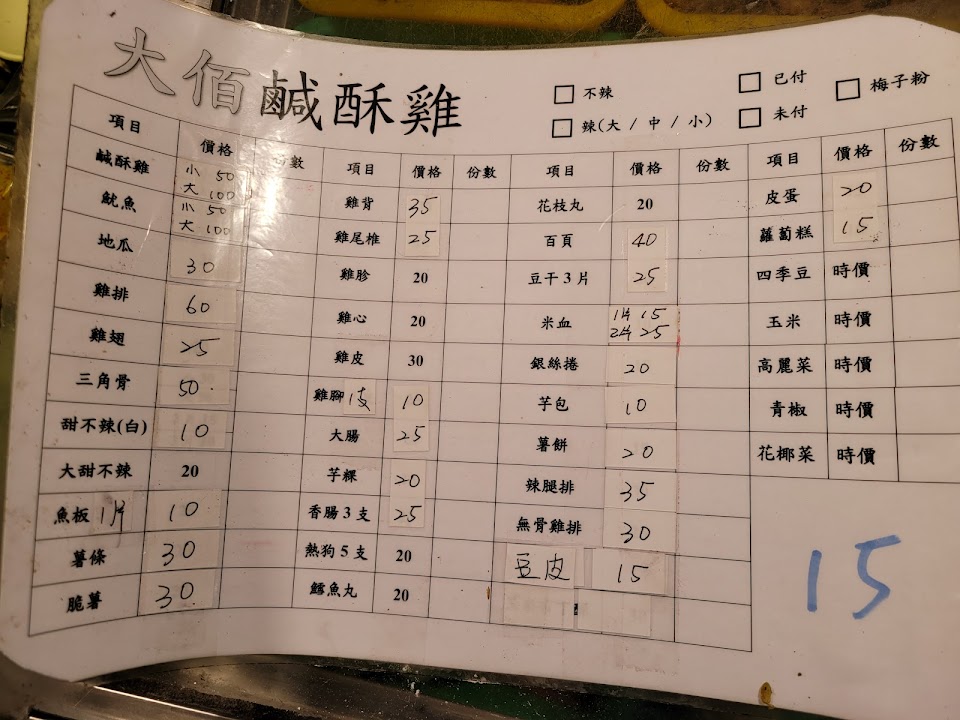 大佰鹹酥雞
不辣 已付 梅子粉
辣(大 / 中 / 小) 未付
項目 價格 份數 項目 價格 份數 項目 價格 份數 項目 價格 份數
鹹酥雞 小 50 大 100 雞背 35 花枝丸 20 皮蛋 20
魷魚 小 50 大 100 雞尾椎 25 百頁 40 蘿蔔糕 15
地瓜 30 雞胗 20 豆干3片 25 四季豆 時價
雞排 60 雞心 20 米血 1片 15 2片 25 玉米 時價
雞翅 25 雞皮 30 銀絲捲 20 高麗菜 時價
三角骨 50 雞腳1支 10 芋包 10 青椒 時價
甜不辣(白) 10 大腸 25 薯餅 20 花椰菜 時價
大甜不辣 20 芋粿 20 辣腿排 35
魚板1片 10 香腸3支 25 無骨雞排 30
薯條 30 熱狗5支 20 豆皮 15
脆薯 30 鱈魚丸 20
15